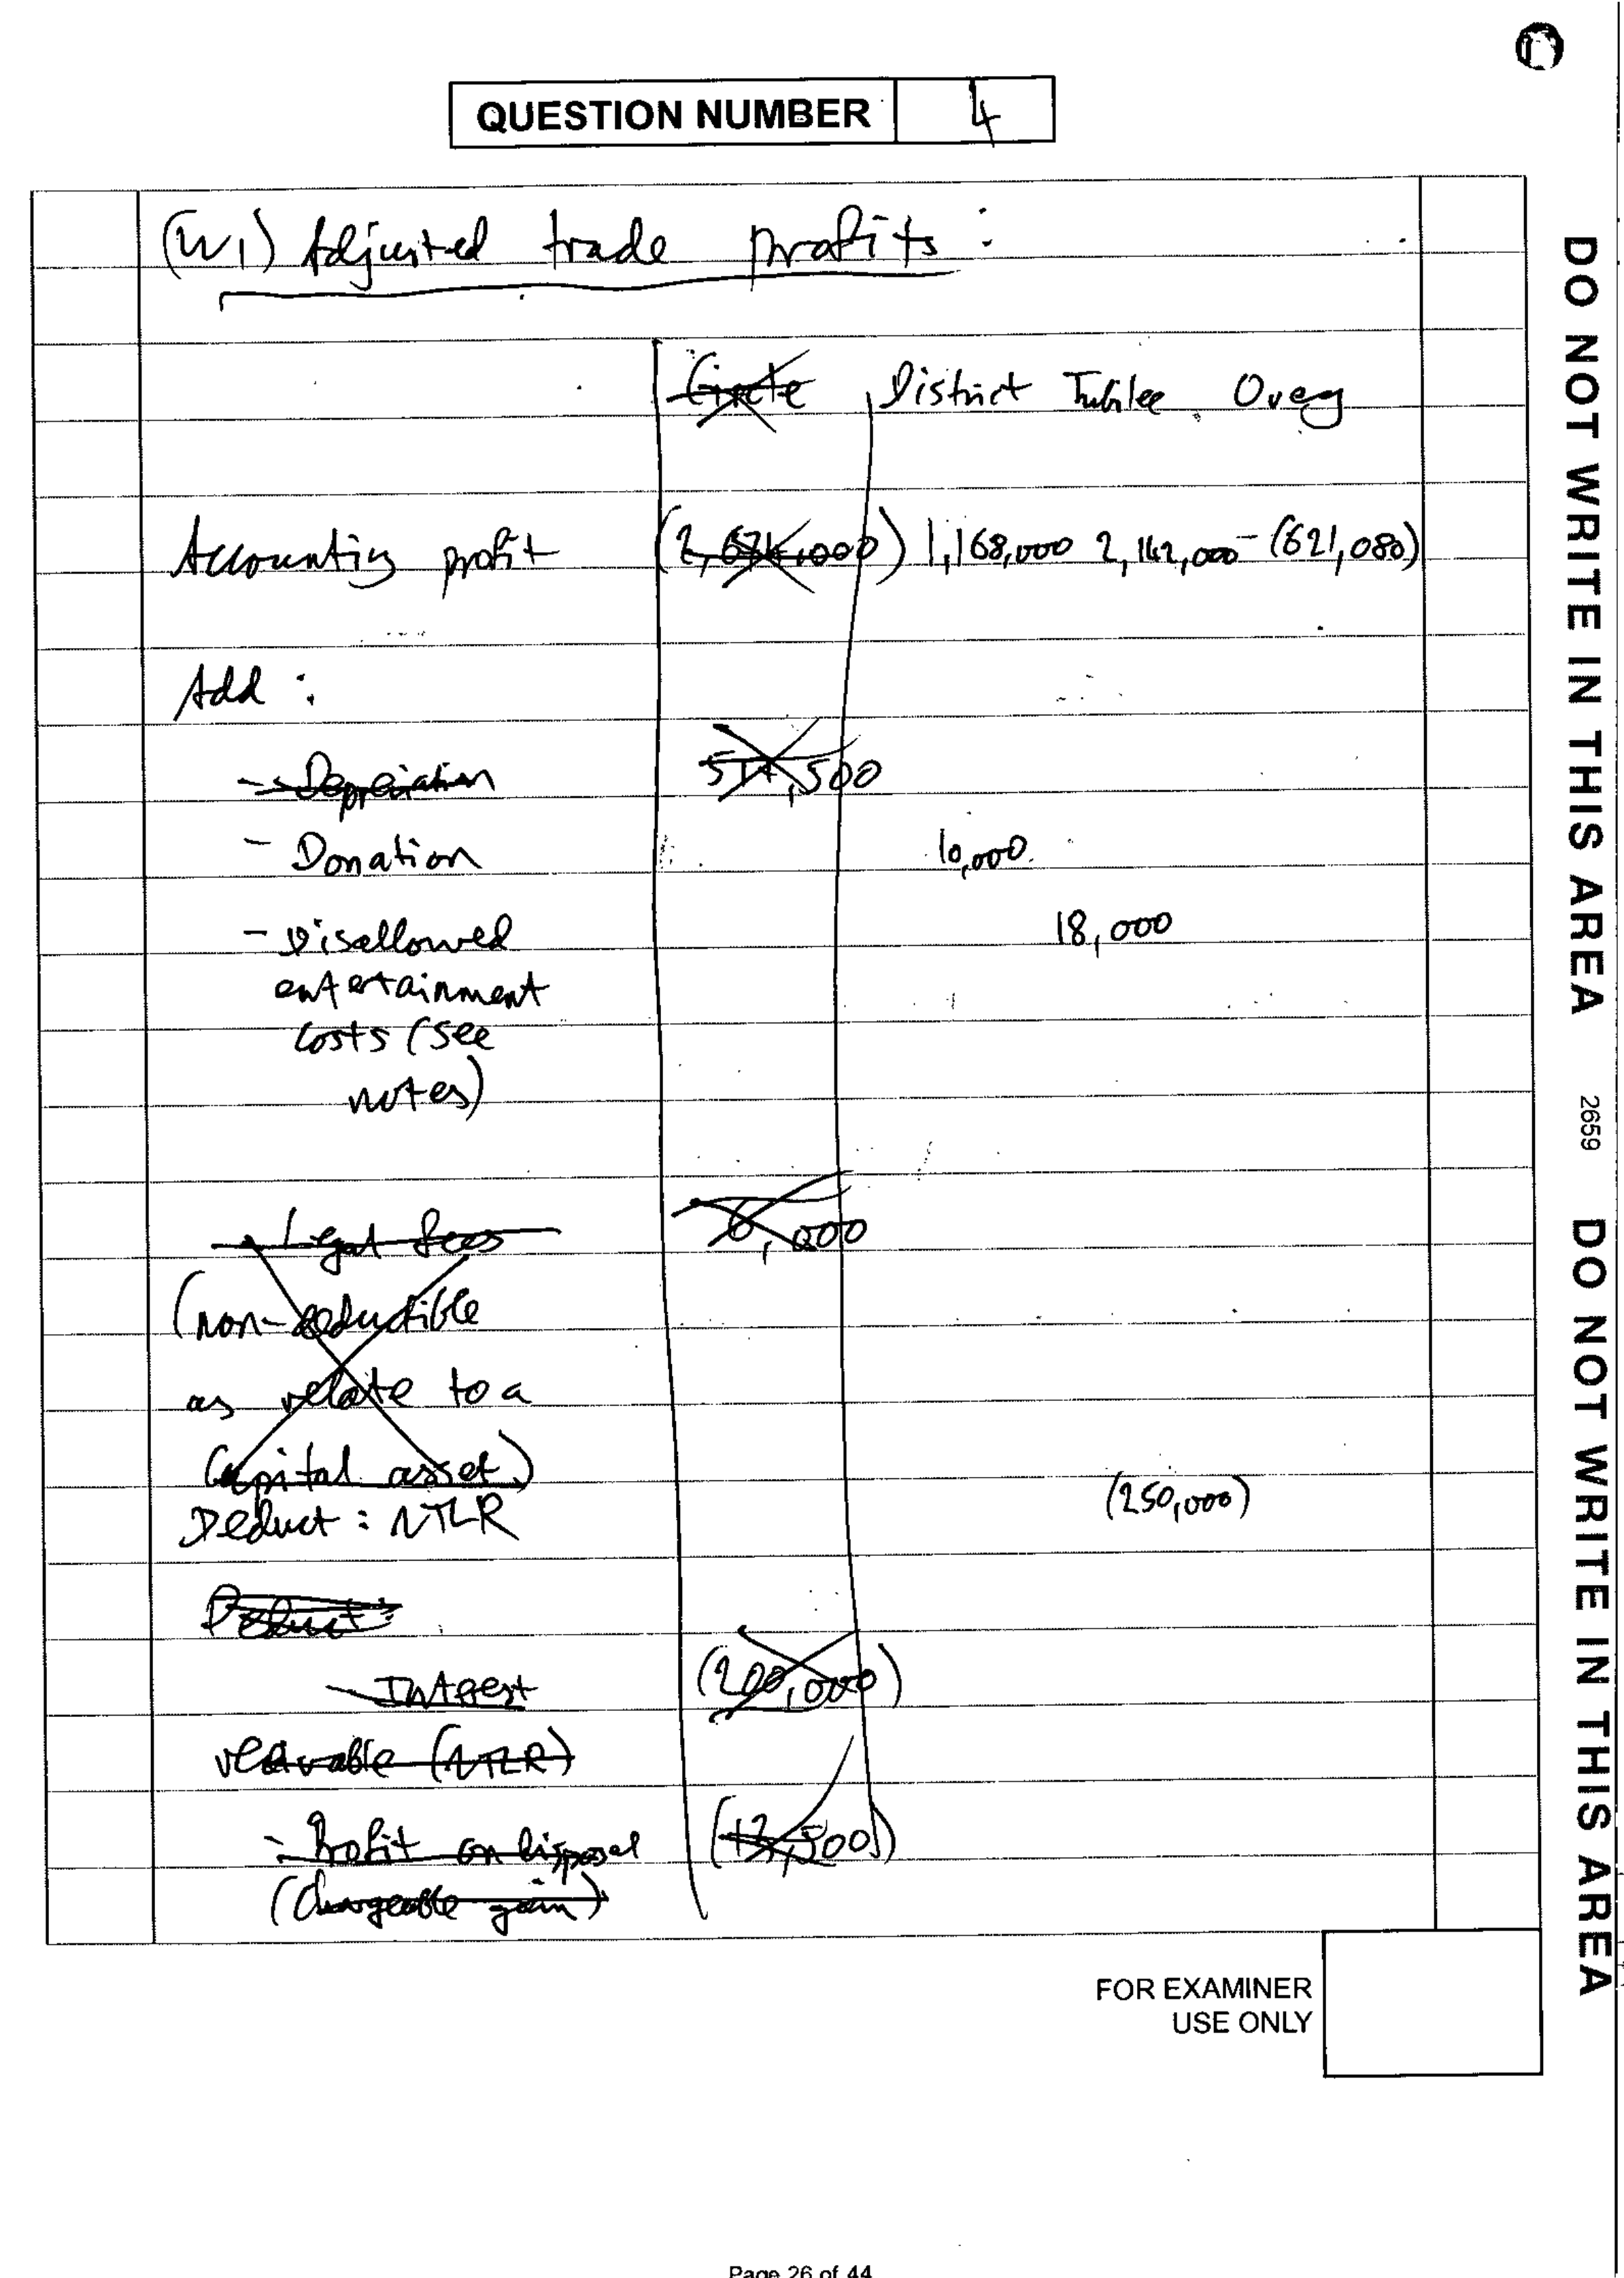 QUESTION NUMBER 4
(W1) Adjusted trade profits :
Circle District Jubilee Overg
Accounting profit (2,674,000) 1,168,000 2,142,000 (621,080)
Add :
- Depreciation 517,500
- Donation 10,000
- Disallowed 18,000
entertainment
costs (see
notes)
- Legal fees 6,000
(non-deductible
as relate to a
capital asset)
Deduct : NTLR (250,000)
Deduct :
- Interest (200,000)
receivable (NTLR)
- Profit on disposal (12,500)
(chargeable gain)
FOR EXAMINER
USE ONLY
Page 26 of 44
DO NOT WRITE IN THIS AREA 2659 DO NOT WRITE IN THIS AREA